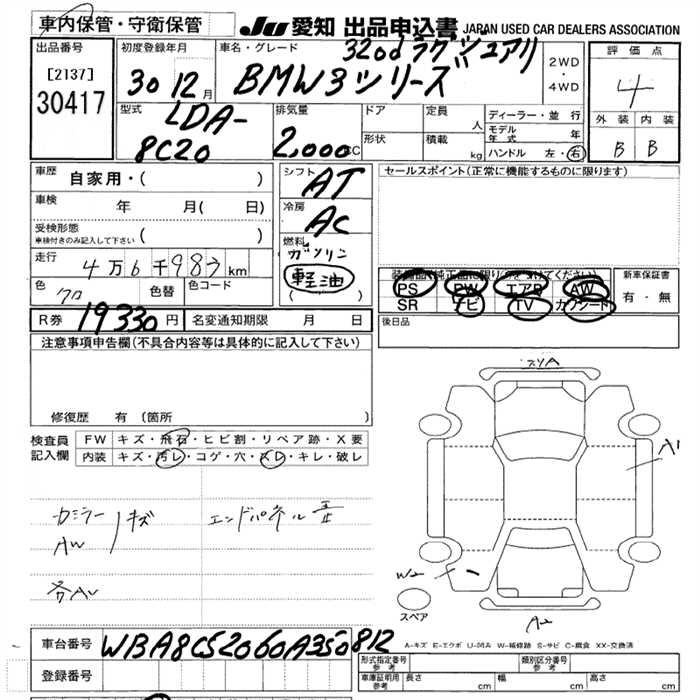 車内保管・守衛保管 JU 愛知 出品申込書 JAPAN USED CAR DEALERS ASSOCIATION
出品番号 [2137] 30417
初度登録年月 30 12月
車名・グレード 320d ラグジュアリ
BMW 3シリーズ
2WD・4WD
評価点 4
型式 LDA-8C20
排気量 2,000cc
ドア 定員 人
形状 積載 kg
ディーラー・並行
モデル年式 年
ハンドル 左・右
外装 内装
B B
車歴 自家用・( )
車検 年 月( 日)
受検形態 車検付きのみ記入して下さい ( )
走行 4万6千983km
色 クロ 色替 色コード
シフト AT
冷房 AC
燃料 ガソリン
軽油
( )
セールスポイント(正常に機能するものに限ります)
装備品(純正品に限り○をつけてください)
PS PW エアB AW
SR ナビ TV カワシート
新車保証書
有・無
R券 19330円 名変通知期限 月 日
後日品
注意事項申告欄(不具合内容等は具体的に記入して下さい)
修復歴 有 (箇所
検査員記入欄
FW キズ・飛石・ヒビ割・リペア跡・X要
内装 キズ・汚レ・コゲ・穴・スレ・キレ・破レ
カミラー キズ エンドパネル
AW
各AW
スリA
A1
W2
A2
スペア
A-キズ E-エクボ U-凹み W-補修跡 S-サビ C-腐食 XX-交換済
車台番号 WBA8C52060A350812
登録番号
形式指定番号 参考 類別区分番号 参考
車庫証明用 参考 長さ cm 幅 cm 高さ cm